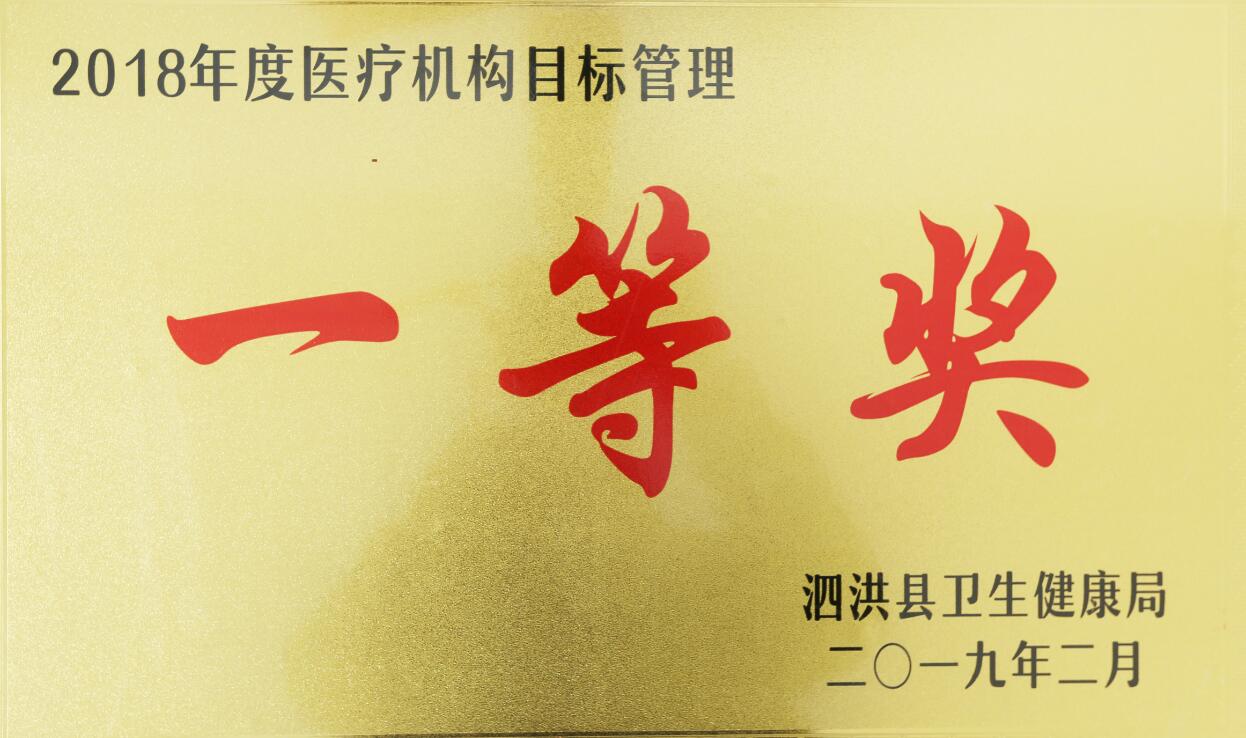 2018年度医疗机构目标管理
一等奖
泗洪县卫生健康局
二〇一九年二月